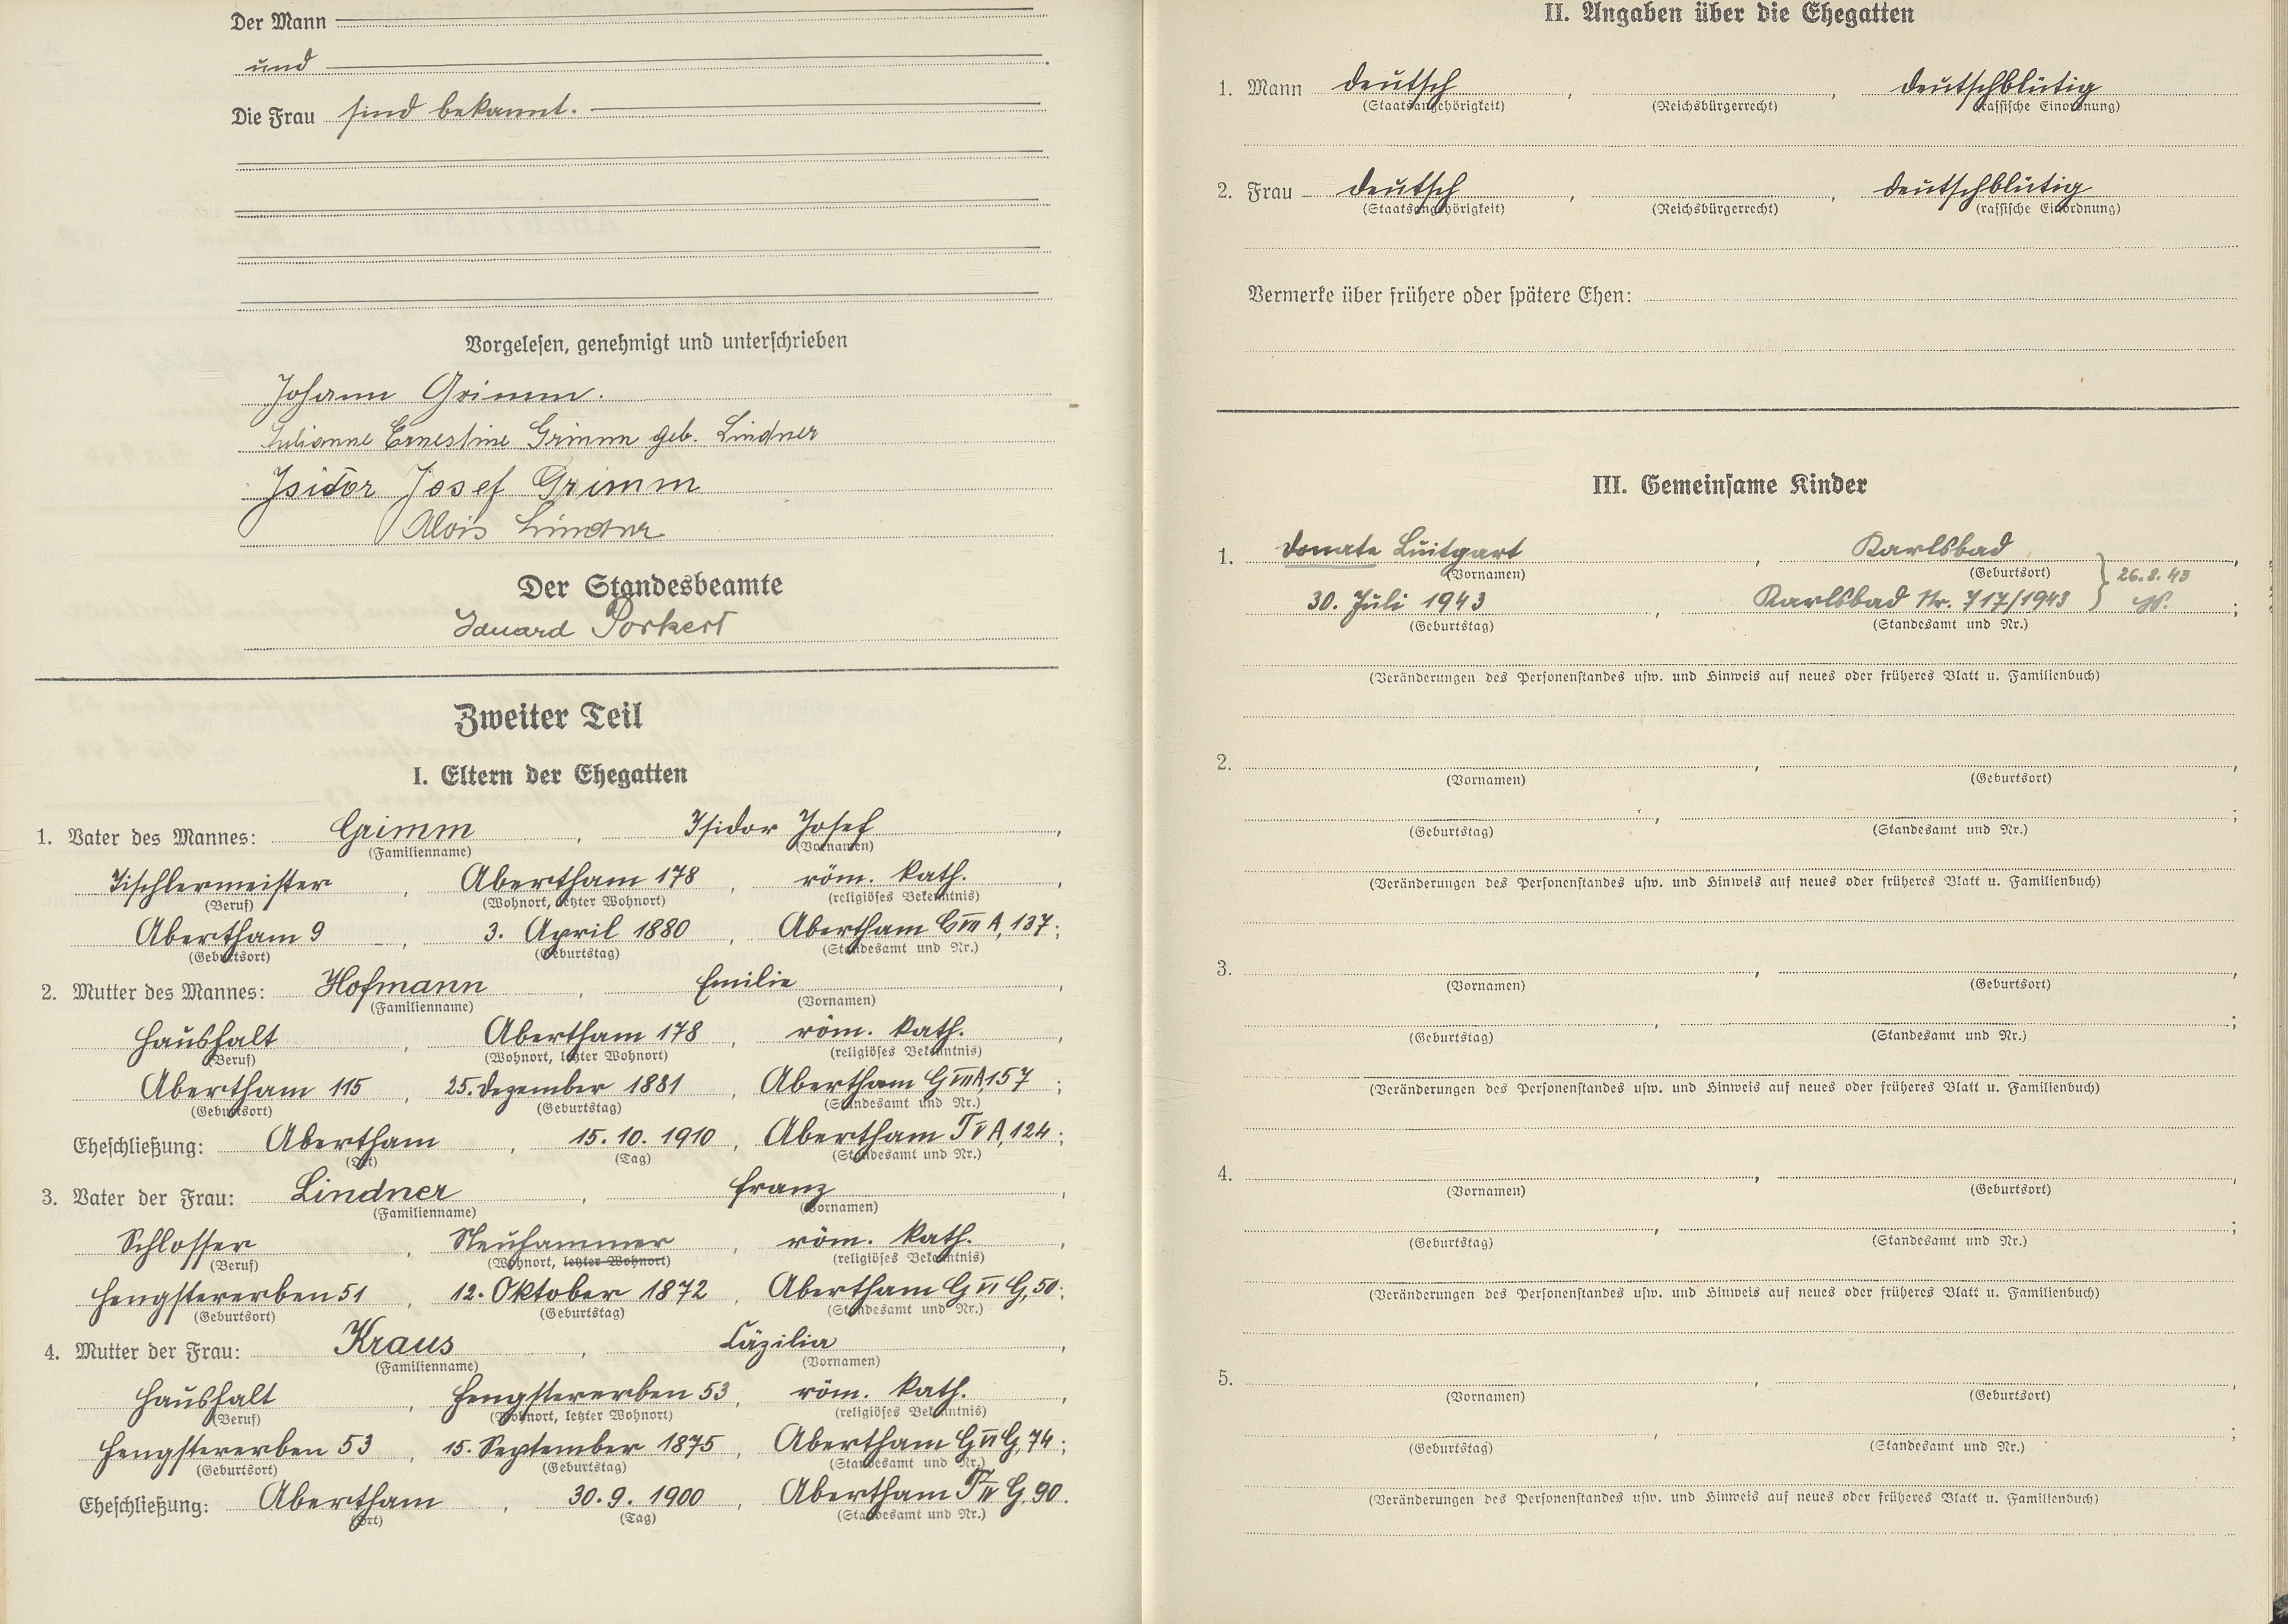 Der Mann
und
Die Frau sind bekannt.
Vorgelesen, genehmigt und unterschrieben
Johann Grimm.
Julianne Ernestine Grimm geb. Lindner
Isidor Josef Grimm
Alois Lindner
Der Standesbeamte
Eduard Porkert
Zweiter Teil
I. Eltern der Ehegatten
1. Vater des Mannes: Grimm, Isidor Josef,
(Familienname) (Vornamen)
Tischlermeister, Abertham 178, röm. kath.,
(Beruf) (Wohnort, letzter Wohnort) (religiöses Bekenntnis)
Abertham 9, 3. April 1880, Abertham G VIII A, 137;
(Geburtsort) (Geburtstag) (Standesamt und Nr.)
2. Mutter des Mannes: Hofmann, Emilie,
(Familienname) (Vornamen)
Haushalt, Abertham 178, röm. kath.,
(Beruf) (Wohnort, letzter Wohnort) (religiöses Bekenntnis)
Abertham 115, 25. Dezember 1881, Abertham G VIII A, 157;
(Geburtsort) (Geburtstag) (Standesamt und Nr.)
Eheschließung: Abertham, 15. 10. 1910, Abertham T V A, 124;
(Ort) (Tag) (Standesamt und Nr.)
3. Vater der Frau: Lindner, Franz,
(Familienname) (Vornamen)
Schlosser, Neuhammer, röm. kath.,
(Beruf) (Wohnort, letzter Wohnort) (religiöses Bekenntnis)
Hengstererben 51, 12. Oktober 1872, Abertham G VI G, 50;
(Geburtsort) (Geburtstag) (Standesamt und Nr.)
4. Mutter der Frau: Kraus, Cäzilia,
(Familienname) (Vornamen)
Haushalt, Hengstererben 53, röm. kath.,
(Beruf) (Wohnort, letzter Wohnort) (religiöses Bekenntnis)
Hengstererben 53, 15. September 1875, Abertham G VI G, 74;
(Geburtsort) (Geburtstag) (Standesamt und Nr.)
Eheschließung: Abertham, 30. 9. 1900, Abertham T IV G, 90.
(Ort) (Tag) (Standesamt und Nr.)
II. Angaben über die Ehegatten
1. Mann deutsch, , deutschblütig
(Staatsangehörigkeit) (Reichsbürgerrecht) (rassische Einordnung)
2. Frau deutsch, , deutschblütig
(Staatsangehörigkeit) (Reichsbürgerrecht) (rassische Einordnung)
Vermerke über frühere oder spätere Ehen:
III. Gemeinsame Kinder
1. Donate Luitgart, Karlsbad,
(Vornamen) (Geburtsort) 26. 8. 43
30. Juli 1943, Karlsbad Nr. 717/1943;
(Geburtstag) (Standesamt und Nr.)
(Veränderungen des Personenstandes usw. und Hinweis auf neues oder früheres Blatt u. Familienbuch)
2. , ,
(Vornamen) (Geburtsort)
, ;
(Geburtstag) (Standesamt und Nr.)
(Veränderungen des Personenstandes usw. und Hinweis auf neues oder früheres Blatt u. Familienbuch)
3. , ,
(Vornamen) (Geburtsort)
, ;
(Geburtstag) (Standesamt und Nr.)
(Veränderungen des Personenstandes usw. und Hinweis auf neues oder früheres Blatt u. Familienbuch)
4. , ,
(Vornamen) (Geburtsort)
, ;
(Geburtstag) (Standesamt und Nr.)
(Veränderungen des Personenstandes usw. und Hinweis auf neues oder früheres Blatt u. Familienbuch)
5. , ,
(Vornamen) (Geburtsort)
, ;
(Geburtstag) (Standesamt und Nr.)
(Veränderungen des Personenstandes usw. und Hinweis auf neues oder früheres Blatt u. Familienbuch)